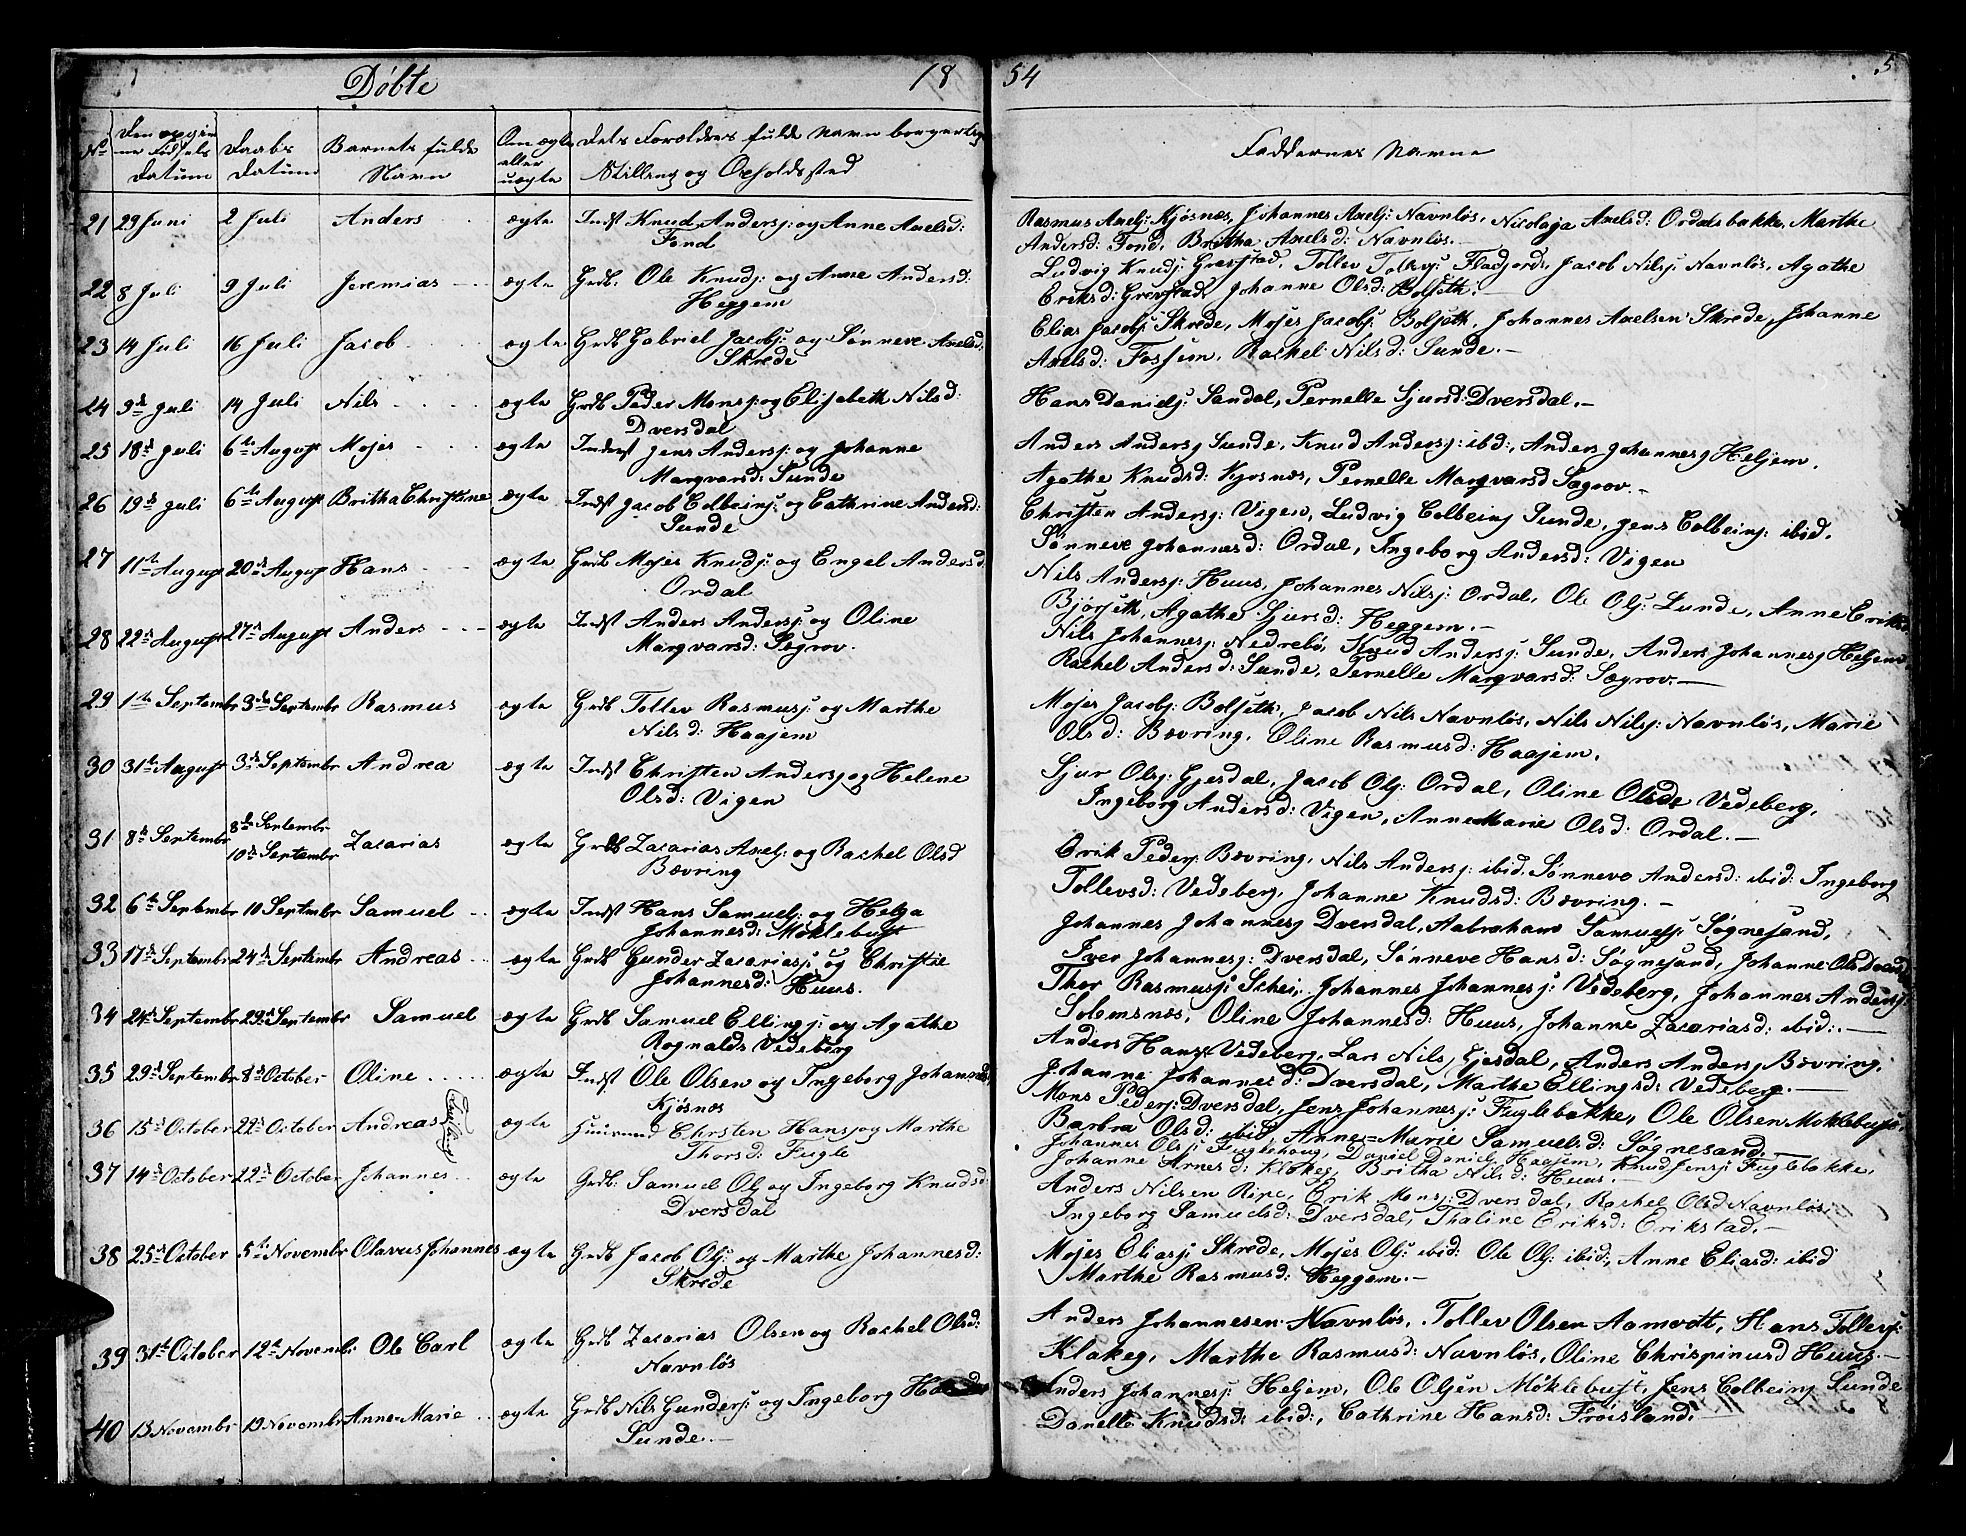 Döbte 1854 5
No Den opgivne Fødsels Datum Daabs Datum Barnets fulde Navn Om ægte eller uægte Dets Forældres fulde Navn borgerlige Stilling og Opholdssted Faddernes Navne
21 29 Juni 2 Juli Anders ægte Indst Knud Andersj: og Anne Axelsd: Fond
Rasmus Axelj: Kjøsnæs, Johannes Axelj: Navnløs, Nicolaja Axelsd: Ordalsbakke, Marthe
Andersd: Fond, Britha Axelsd: Navnløs.
22 8 Juli 9 Juli Jeremias ægte Grdb. Ole Knudj: og Anne Andersd: Heggem
Ludvig Knudj: Grevstad, Tollev Tollevj: Flafjord, Jacob Nilsj: Navnløs, Agathe
Eriksd: Grevstad, Johanne Olsd: Bolseth.
23 14 Juli 16 Juli Jacob ægte Grdb Gabriel Jacobj: og Sønneve Axelsd: Skrede
Elias Jacobj: Skrede, Mojes Jacobj: Bolseth, Johannes Axelsen Skrede, Johanne
Axelsd: Fossum, Rachel Nilsd: Sunde.
24 3de Juli 14 Juli Nils ægte Grdb Peder Monsj: og Elisabeth Nilsd: Dversdal
Hans Danielsj: Sandal, Pernelle Sjursd: Dversdal.
25 18de Juli 6te August Mojes ægte Inderst Jens Andersj: og Johanne Marqvarsd: Sunde
Anders Andersj Sunde, Knud Andersj: ibd:, Anders Johannesj Heljem,
Agathe Knudsd: Kjosnæs, Pernelle Marqvarsd Sægrov.
26 19de Juli 6te August Britha Christine ægte Indst Jacob Colbeinj: og Cathrine Andersd: Sunde
Christen Andersj: Vigen, Ludvig Colbeinj Sunde, Jens Colbeinj: ibid.
Sønneve Johannesd: Ordal, Ingeborg Andersd: Vigen
27 11te August 20de August Hans ægte Grdb Mojes Knudj: og Engel Andersd: Ordal
Nils Andersj: Huus, Johannes Nilsj: Ordal, Ole Olsj: Lunde, Anne Eriksd
Bjørseth, Agathe Sjursd: Heggem.
28 22de August 27de August Anders ægte Indst Anders Andersj: og Oline Marqvarsd: Sægrov.
Nils Johannesj: Nedrebö, Knud Andersj: Sunde, Anders Johannesj Heljem
Rachel Andersd: Sunde, Pernelle Marqvarsd: Sægrov.
29 1ste Septembr 3de Septembr Rasmus ægte Grdb Tollev Rasmusj: og Marthe Nilsd: Haajem
Mojes Jacobj: Bolseth, Jacob Nils Navnløs, Nils Nilsj: Navnløs, Marie
Olsd: Bævring, Oline Rasmusd: Haajem.
30 31te August 3de Septembr Andrea ægte Indst Christen Andersj og Helene Olsd: Vigen
Sjur Olsj: Gjesdal, Jacob Olj: Ordal, Oline Olsd: Vedeberg,
Ingeborg Andersd: Vigen, Anne Marie Olsd: Ordal.
31 8de Septembr 8de Septembr 10de Septembr Zacarias ægte Grdb Zacarias Axelj: og Rachel Olsd Bævring
Erik Pedersj: Bævring, Nils Andersj: ibid. Sønneve Andersd: ibid: Ingeborg
Tollevsd: Vedeberg, Johanne Knudsd: Bævring.
32 6te Septembr 10 Septmbr Samuel ægte Indst Hans Samuelj: og Helga Johannesd: Møklebust
Johannes Johannesj Dversdal, Aabraham Samuelsj: Søgnesand,
Iver Johannesj: Dversdal, Sønneve Hansd: Søgnesand, Johanne Olsd Dversdal
33 17de Septembr 24de Septembr Andreas ægte Grdb Gunder Zacariasj: og Christie Johannesd: Huus.
Thor Rasmusj: Schei, Johannes Johannesj: Vedeberg, Johannes Andersj:
Solemsnæs, Oline Johannesd: Huus, Johanne Zacariasd: ibid:.
34 24de Septembr 29de Septembr Samuel ægte Grdb Samuel Ellingj: og Agathe Rognalds Vedeberg
Anders Hansj Vedeberg, Lars Nilsj Gjesdal, Anders Andersj Bævring,
Johanne Johannesd: Dversdal, Marthe Ellingsd: Vedeberg.
35 29de Septembr 8de October Oline ægte Indst Ole Olsen og Ingeborg Johannesd: Kjøsnæs
Mons Pedersj: Dversdal, Jens Johannesj: Fuglebakke, Ole Olsen Møklebust,
Barbra Olsd: ibid, Anne-Marie Samuelsd: Søgnesand.
36 15de October 22de October Andreas Tvilling ægte Huusmand Chrsten Hansj og Marthe Thorsd: Fugle
Johannes Olsj: Fuglehaug, Daniel Danielj Haajem, Knud Jensj Fuglebakke,
Johanne Arnesd: Klakeg, Britha Nilsd: Huus.
37 14de October 22de October Johannes ægte Grdb: Samuel Olj og Ingeborg Knudsd: Dversdal
Anders Nilsen Ripe, Erik Monsj: Dversdal, Rachel Olsd Navnløs
Ingeborg Samuelsd: Dversdal, Thaline Eriksd: Erikstad.
38 25de October 5te Novembr Olavus Johannes ægte Grdb Jacob Olj: og Marthe Johannesd: Skrede
Mojes Eliasj Skrede, Mojes Olj: ibid: Ole Olj: ibid:, Anne Eliasd: ibid
Marthe Rasmusd: Heggem.
39 31te October 12te Novembr: Ole Carl ægte Grdb Zacarias Olsen og Rachel Olsd: Navnløs
Anders Johannesen Navnløs, Tollev Olsen Aamodt, Hans Tollevsj:
Klakeg, Marthe Rasmusd: Navnløs, Oline Chrispinusd Huus.
40 13 Novembr 19 Novembr Anne-Marie ægte Grdb Nils Gundersj: og Ingeborg Sunde.
Anders Johannesj: Heljem, Ole Olsen Møklebust, Jens Colbeinj Sunde
Danelle Knudsd: ibid:, Cathrine Hansd: Frøisland.